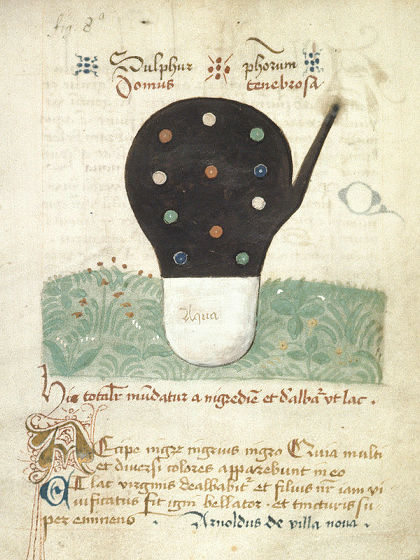 fig. 8ª
Sulphur phorum
Domus tenebrosa
Aqua
Hic totalr mūdatur a nigrediē et dealbat ut lac .
Accipe nigrū nigrius nigro Quia multi
et diversi colores apparebunt in eo
Et lac virginis dealbabit et filius nr iam vi
vificatus fit igni bellator et tincturis su
per eminens . Arnoldus de villa nova .